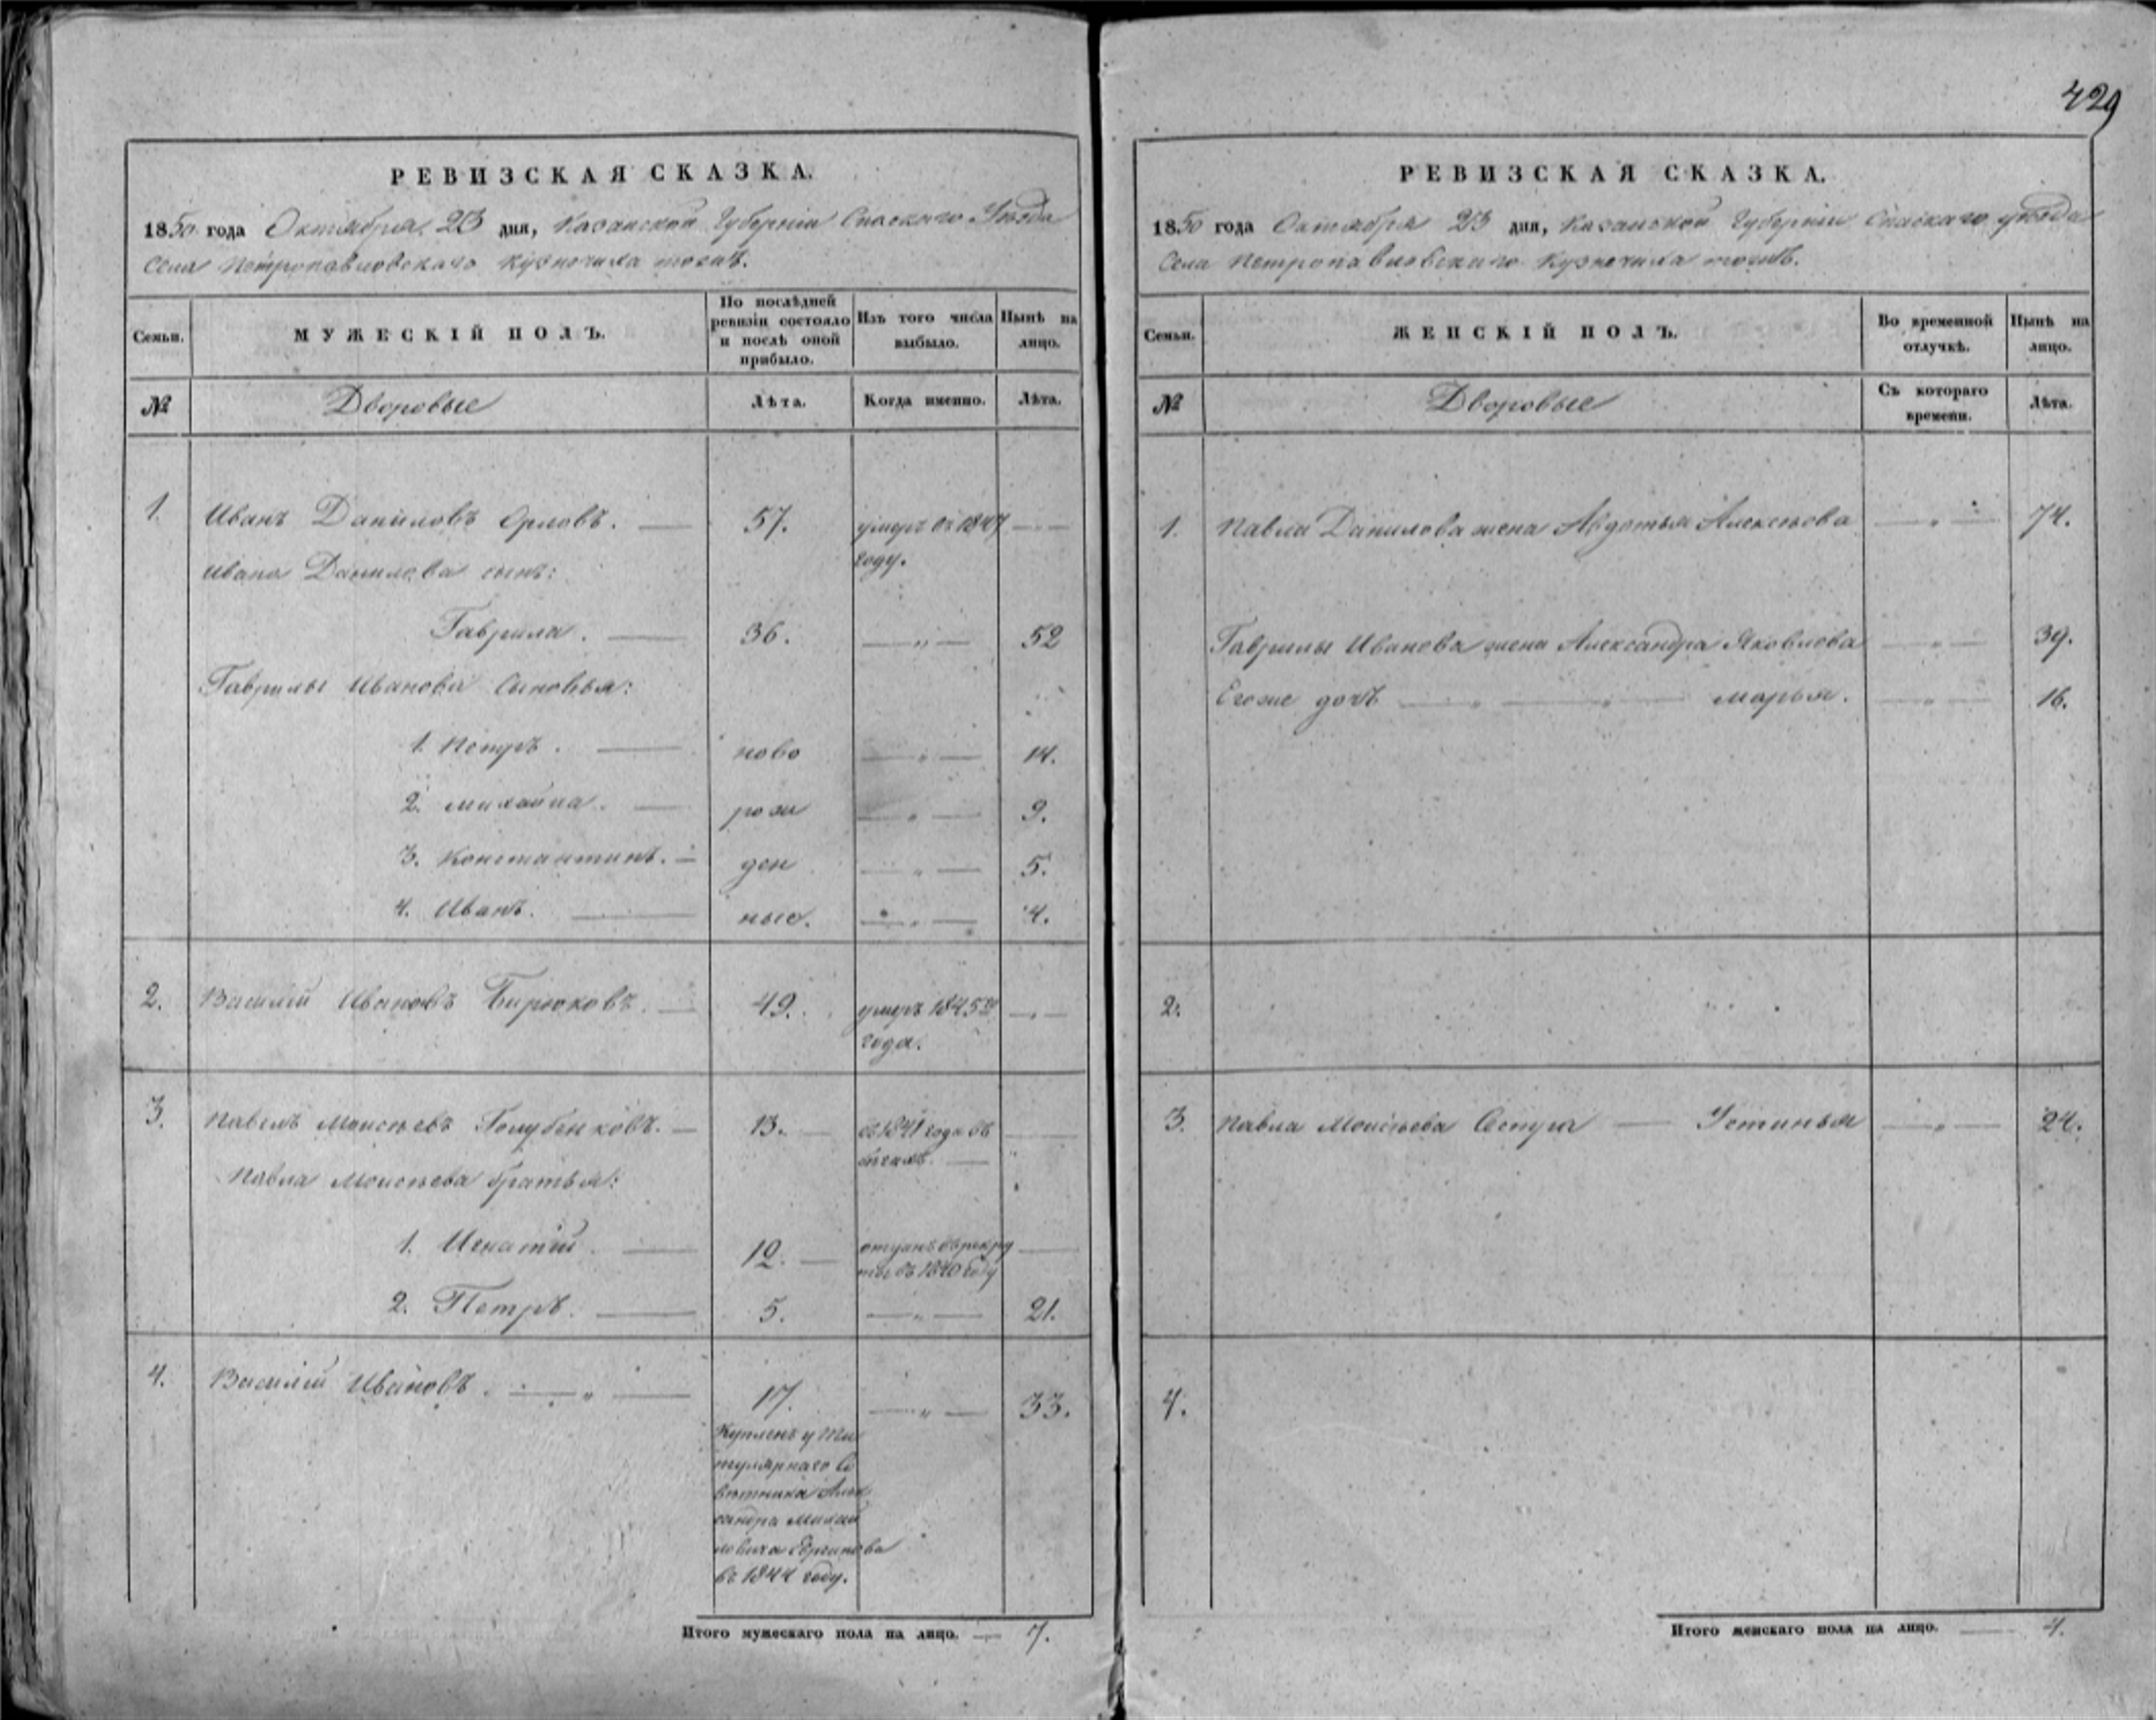 429
РЕВИЗСКАЯ СКАЗКА.
1850 года Октября 23 дня, Казанской Губернiи Спаскаго Уѣзда
Села Петропавловскаго Кузнечиха тожъ.
Семьи.
МУЖЕСКIЙ ПОЛЪ.
По послѣдней ревизiи состояло и послѣ оной прибыло.
Изъ того числа выбыло.
Нынѣ на лицо.
№
Дворовые
Лѣта.
Когда именно.
Лѣта.
1. Иванъ Даниловъ Орловъ. — 57. умеръ въ 1847 —
Ивана Данилова сынъ: году.
Гаврила. — 36. — „ — 52
Гаврилы Иванова Сыновья:
1. Петръ. — ново — „ — 14.
2. Михайла. — рож — „ — 9.
3. Константинъ. — ден — „ — 5.
4. Иванъ. — ные. — „ — 4.
2. Василiй Ивановъ Бирюковъ. — 49. умеръ 1845го — „ —
года.
3. Павелъ Моисѣевъ Голубенковъ. — 13. — съ 1841 года въ —
бѣгахъ. —
Павла Моисѣева братья:
1. Игнатiй. — 12. — отданъ въ рекру —
ты въ 1840 году
2. Петръ. — 5. — „ — 21.
4. Василiй Ивановъ. — „ — 17. — „ — 33.
Купленъ у Ти
тулярнаго Со
вѣтника Алек
сандра Михай
ловича
въ 1844 году.
Итого мужескаго пола на лицо. — 7.
РЕВИЗСКАЯ СКАЗКА.
1850 года Октября 23 дня, Казанской Губернiи Спаскаго уѣзда
Села Петропавловскаго Кузнечиха тожъ.
Семьи.
ЖЕНСКIЙ ПОЛЪ.
Во временной отлучкѣ.
Нынѣ на лицо.
№
Дворовые
Съ котораго времени.
Лѣта.
1. Павла Данилова жена Авдотья Алексѣева — „ — 74.
Гаврилы Иванова жена Александра Яковлева — „ — 39.
Егоже дочь — „ — „ — Марья. — „ — 16.
2.
3. Павла Моисѣева Сестра — Устинья — „ — 24.
4.
Итого женскаго пола на лицо. — 4.